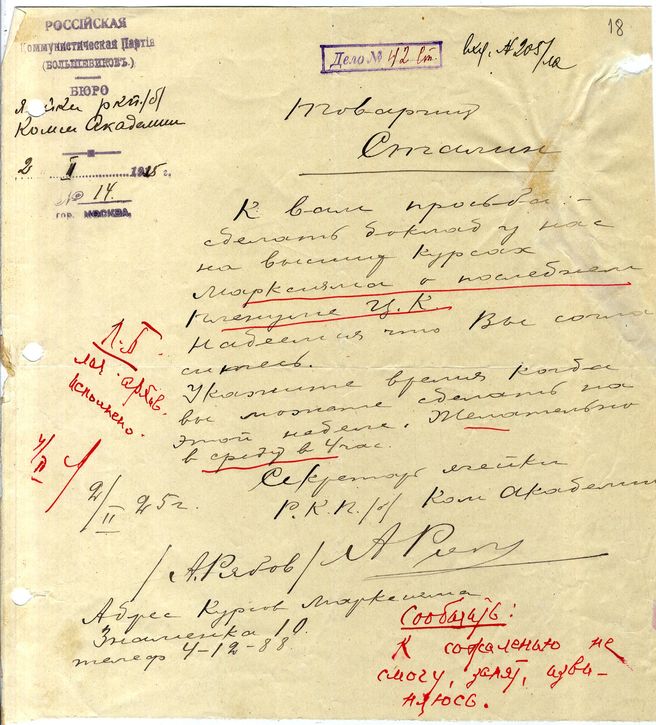 18
РОССІЙСКАЯ
Коммунистическая Партія
(БОЛЬШЕВИКОВЪ.)
БЮРО
ячейки ркп/б/
Комм Академии
2 II 1925 г.
№ 14.
гор. МОСКВА.
Дело № 42 ст.
вхд. № 205/
Товарищ
Сталин
К вам просьба –
сделать доклад у нас
на высших курсах
Марксизма о последнем
пленуме Ц.К.
Надеемся что Вы согла
ситесь.
Укажите время когда
вы можете сделать на
этой неделе. Желательно
в среду в 4 час.
Секретарь ячейки
Р.К.П./б/ Ком Академии
2/II 25 г.
/А.Рябов/
Адрес Курсов Марксизма
Знаменка 10.
телеф 4-12-88.
архив.
Исполнено.
4/II
Сообщить:
К сожаленью не
смогу, занят, изви-
няюсь.